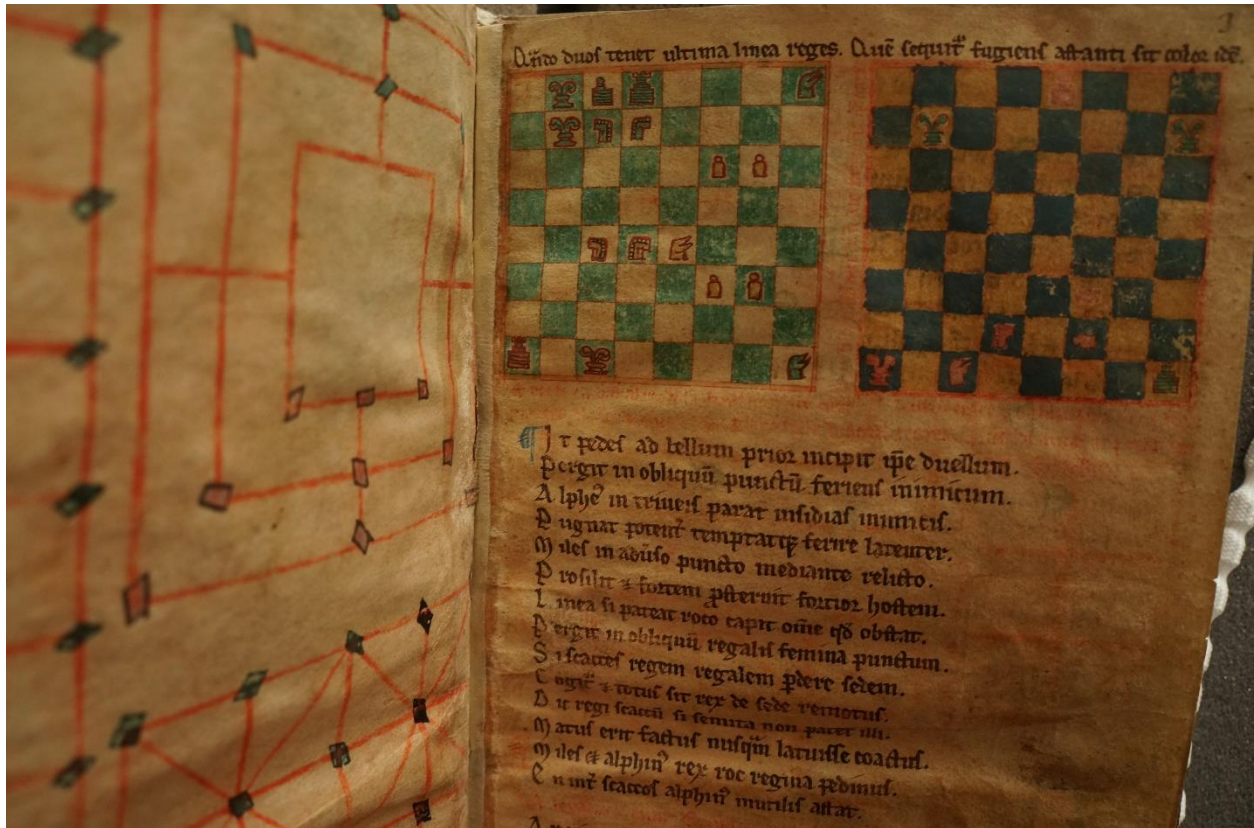 Qn̄do duos tenet ultima linea reges. Quē sequit᷑ fugiens astanti sit color idē.
It pedes ad bellum prior incipit ip̄e duellum.
Pergit in obliquū punctū feriens inimicum.
Alphꝰ in triviis parat insidias inimicis.
Pugnat potent᷑ temptatqꝫ ferire latenter.
Miles in adūso puncto mediante relicto.
Prosilit ⁊ fortem ꝓsternit fortior hostem.
Linea si pateat roco capit om̄e qd̄ obstat.
Pergit in obliquū regalis femina punctum.
Si scaccet regem regalem ꝑdere sedem.
Cogit᷑ ⁊ totus sit rex de sede remotus.
Dic regi scaccū si semita non patet illi.
Matus erit factus nusq̄m latuisse coactus.
Miles et alphinꝰ rex roc regina pedinus.
En int᷑ scaccos alphinꝰ inutilis astat.